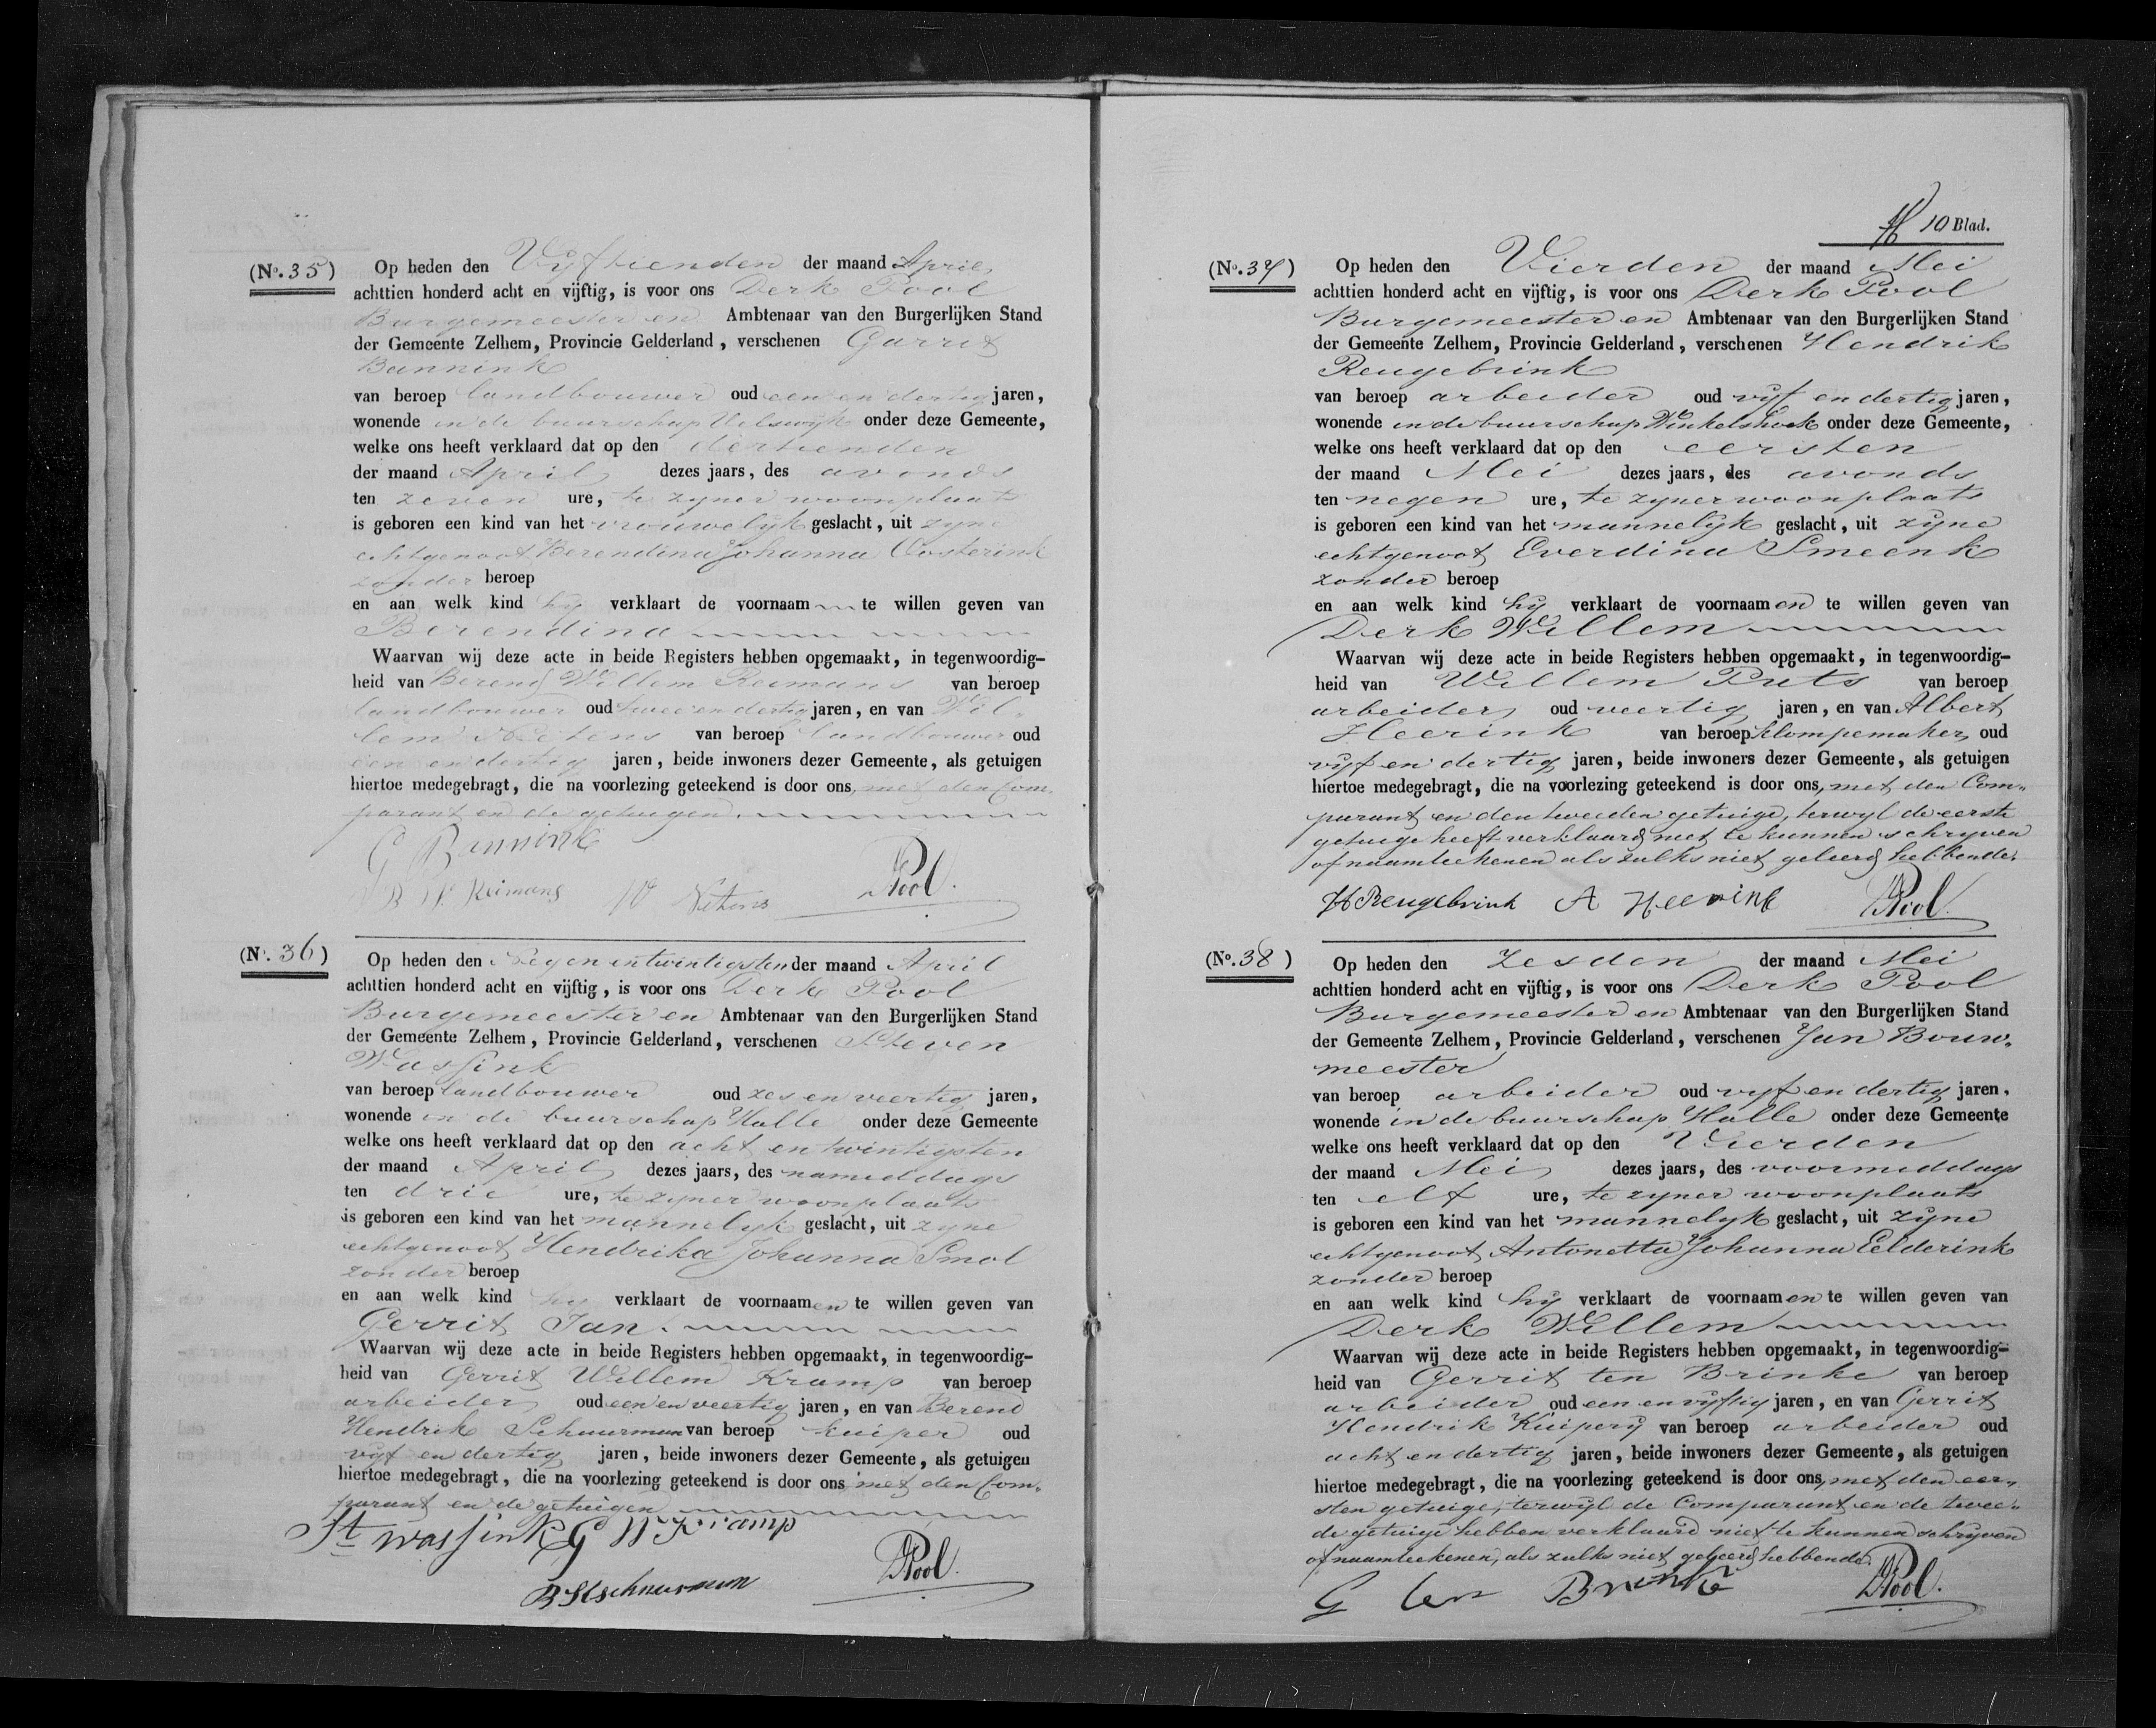 (No. 35)
Op heden den Vyftienden der maand April
achttien honderd acht en vijftig, is voor ons Derk Pool
Burgemeester en Ambtenaar van den Burgerlijken Stand
der Gemeente Zelhem, Provincie Gelderland, verschenen Garrit
Bannink
van beroep landbouwer oud een en dertig jaren,
wonende in de buurschap Velswyk onder deze Gemeente,
welke ons heeft verklaard dat op den dertienden
der maand April dezes jaars, des avonds
ten zeven ure, te zyner woonplaats
is geboren een kind van het vrouwelyk geslacht, uit zyne
echtgenoot Berendina Johanna Oosterink
zonder beroep
en aan welk kind hy verklaart de voornaam te willen geven van
Berendina
Waarvan wij deze acte in beide Registers hebben opgemaakt, in tegenwoordig-
heid van Berend Willem Reimans van beroep
landbouwer oud twee en dertig jaren, en van Wil-
lem van beroep landbouwer oud
een en dertig jaren, beide inwoners dezer Gemeente, als getuigen
hiertoe medegebragt, die na voorlezing geteekend is door ons, met den Com-
parant en de getuigen.
G Bannink
B W Reimans W DPool.
(No. 36)
Op heden den Negen entwintigsten der maand April
achttien honderd acht en vijftig, is voor ons Derk Pool
Burgemeester en Ambtenaar van den Burgerlijken Stand
der Gemeente Zelhem, Provincie Gelderland, verschenen Steven
Wassink
van beroep landbouwer oud zes en veertig jaren,
wonende in de buurschap Halle onder deze Gemeente
welke ons heeft verklaard dat op den acht en twintigsten
der maand April dezes jaars, des namiddags
ten drie ure, te zyner woonplaats
is geboren een kind van het mannelyk geslacht, uit zyne
echtgenoot Hendrika Johanna Smol
zonder beroep
en aan welk kind hy verklaart de voornaamen te willen geven van
Gerrit Jan.
Waarvan wij deze acte in beide Registers hebben opgemaakt, in tegenwoordig-
heid van Gerrit Willem Kramp van beroep
arbeider oud een en veertig jaren, en van Berend
Hendrik Schuurman van beroep kuiper oud
vyf en dertig jaren, beide inwoners dezer Gemeente, als getuigen
hiertoe medegebragt, die na voorlezing geteekend is door ons met den Com-
parant en de getuigen
St Wassink G W Kramp
BHSchuurman DPool.
10 Blad.
(No. 37)
Op heden den Vierden der maand Mei
achttien honderd acht en vijftig, is voor ons Derk Pool
Burgemeester en Ambtenaar van den Burgerlijken Stand
der Gemeente Zelhem, Provincie Gelderland, verschenen Hendrik
Rengebrink
van beroep arbeider oud vyf en dertig jaren,
wonende in de buurschap Winkelshoek onder deze Gemeente,
welke ons heeft verklaard dat op den eersten
der maand Mei dezes jaars, des avonds
ten negen ure, te zyner woonplaats
is geboren een kind van het mannelyk geslacht, uit zyne
echtgenoot Everdina Smeenk
zonder beroep
en aan welk kind hy verklaart de voornaamen te willen geven van
Derk Willem
Waarvan wij deze acte in beide Registers hebben opgemaakt, in tegenwoordig-
heid van Willem Puts van beroep
arbeider, oud veertig jaren, en van Albert
Heerink van beroep klompemaker, oud
vyf en dertig jaren, beide inwoners dezer Gemeente, als getuigen
hiertoe medegebragt, die na voorlezing geteekend is door ons, met den Com-
parant en den tweeden getuige, terwyl de eerste
getuige heeft verklaard niet te kunnen schryven
of naamteekenen als zulks niet geleerd hebbende.
H Rengebrink A Heerink DPool.
(No. 38)
Op heden den Zesden der maand Mei
achttien honderd acht en vijftig, is voor ons Derk Pool
Burgemeester en Ambtenaar van den Burgerlijken Stand
der Gemeente Zelhem, Provincie Gelderland, verschenen Jan Bouw-
meester
van beroep arbeider oud vyf en dertig jaren,
wonende in de buurschap Halle onder deze Gemeente
welke ons heeft verklaard dat op den Vierden
der maand Mei dezes jaars, des voormiddags
ten elf ure, te zyner woonplaats
is geboren een kind van het mannelyk geslacht, uit zyne
echtgenoot Antonetta Johanna Eelderink
zonder beroep
en aan welk kind hy verklaart de voornaamen te willen geven van
Derk Willem
Waarvan wij deze acte in beide Registers hebben opgemaakt, in tegenwoordig-
heid van Gerrit ten Brinke van beroep
arbeider oud een en vyftig jaren, en van Gerrit
Hendrik Kuipery van beroep arbeider oud
acht en dertig jaren, beide inwoners dezer Gemeente, als getuigen
hiertoe medegebragt, die na voorlezing geteekend is door ons, met den eer-
sten getuige, terwyl de Comparant en de twee-
de getuige hebben verklaard niet te kunnen schryven
of naamteekenen, als zulks niet geleerd hebbende.
G ten Brinke DPool.